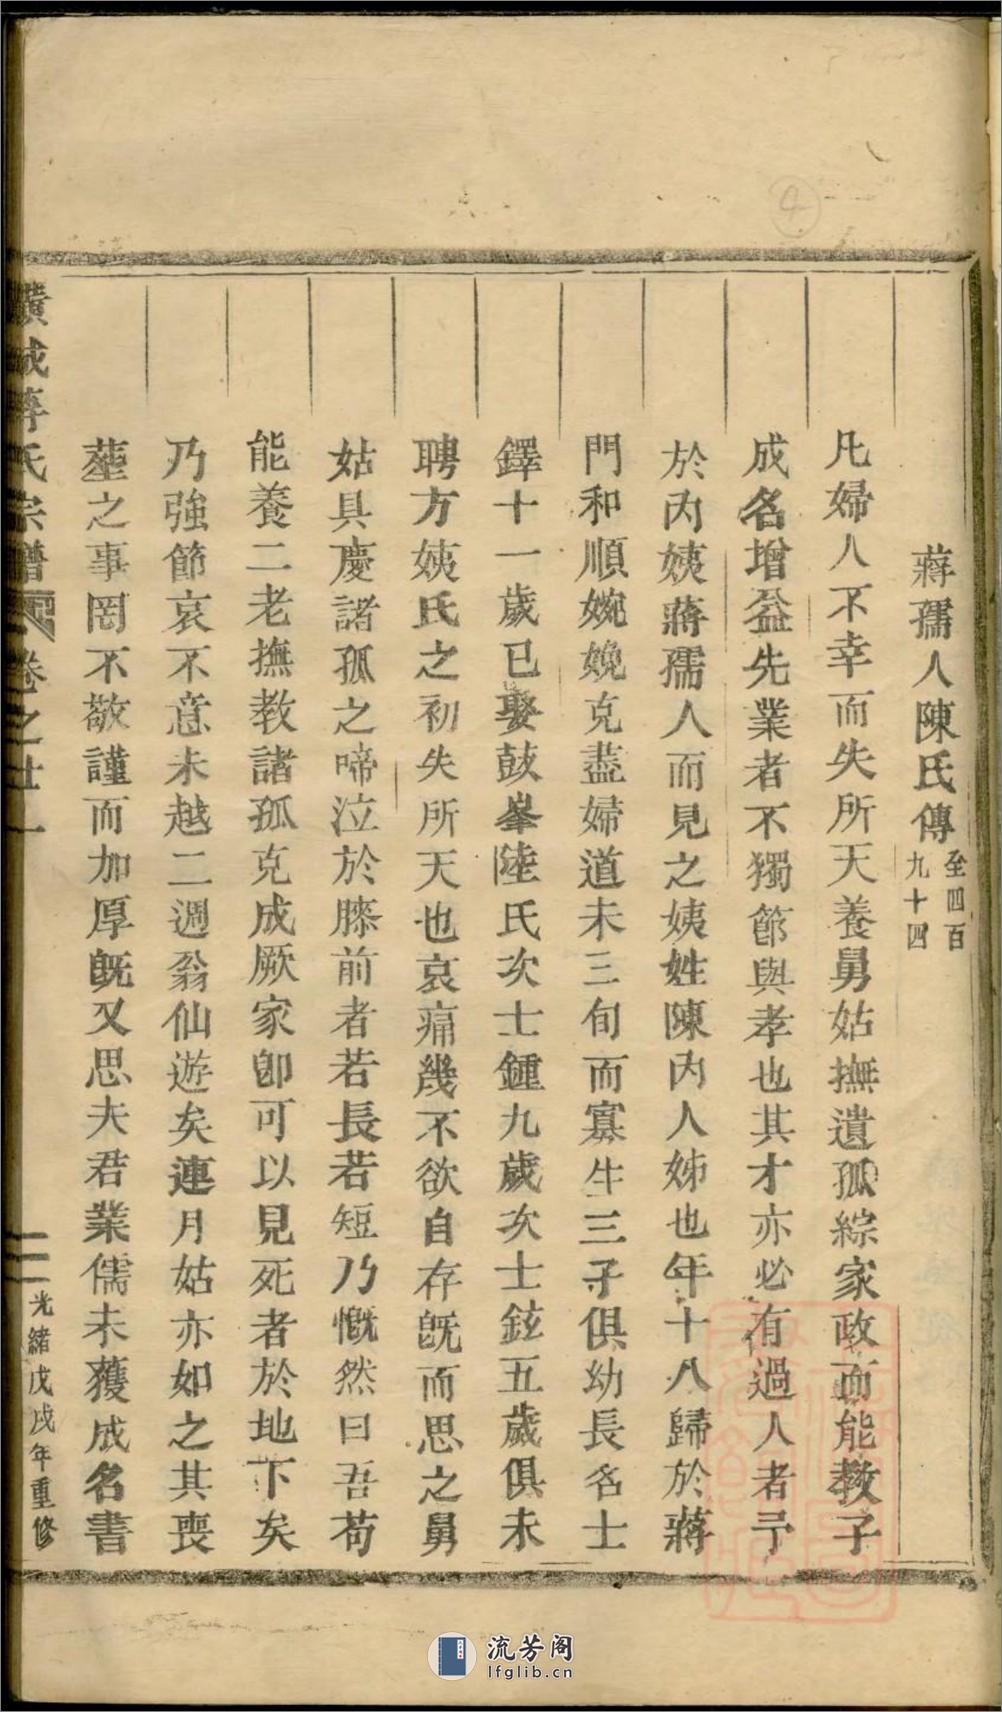 ④
蔣孺人陳氏傳至四百九十四
凡婦人不幸而失所天養舅姑撫遺孤綜家政而能教子
成名增益先業者不獨節與孝也其才亦必有過人者予
於內姨蔣孺人而見之姨姓陳內人姊也年十八歸於蔣
門和順婉娩克盡婦道未三旬而寡生三子俱幼長名士
鐸十一歲已娶鼓峯陸氏次士鍾九歲次士鉉五歲俱未
聘方姨氏之初失所天也哀痛幾不欲自存旣而思之舅
姑具慶諸孤之啼泣於膝前者若長若短乃慨然曰吾苟
能養二老撫教諸孤克成厥家卽可以見死者於地下矣
乃強節哀不意未越二週翁仙遊矣連月姑亦如之其喪
塟之事罔不敬謹而加厚旣又思夫君業儒未獲成名書
橫城蔣氏宗譜 卷之廿一
二 光緒戊戌年重修
流芳阁
lfglib.cn